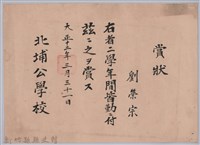 賞狀
劉榮宗
右者二學年間皆勤ニ付
茲ニ之ヲ賞ス
大正三年三月三十一日
北埔公學校